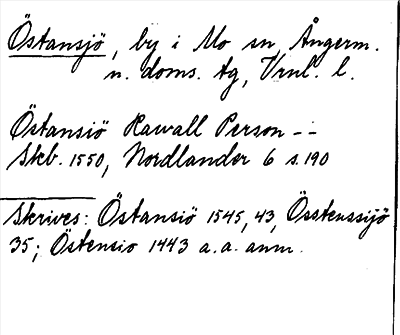 Östansjö, by i Mo sn, Ångerm.
n. doms. tg, Vrnl. l.
Östansiö Rawall Person - -
Skb. 1550, Nordlander 6 s. 190
Skrives: Östansiö 1545, 43, Össtenssijö
35; Östensio 1443 a. a. anm.